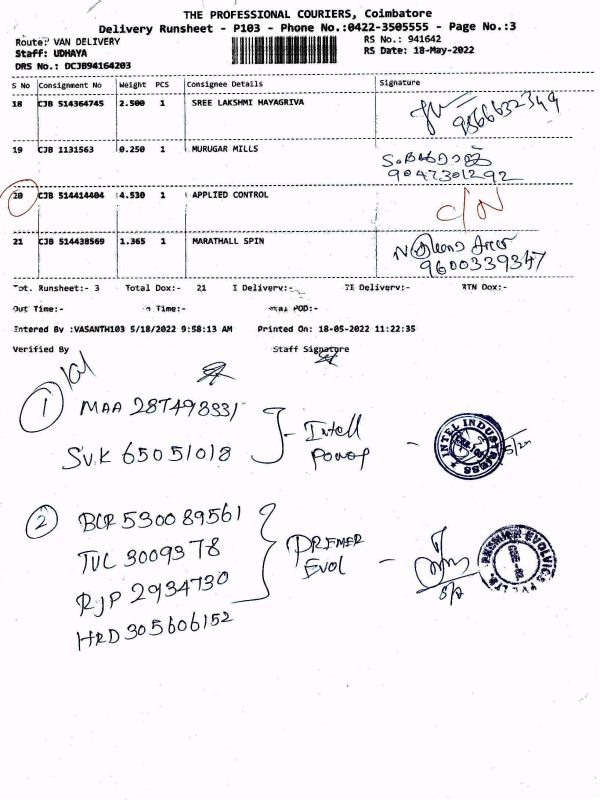 THE PROFESSIONAL COURIERS, Coimbatore
Delivery Runsheet - P103 - Phone No.:0422-3505555 - Page No.:3
Route: VAN DELIVERY RS No.: 941642
Staff: UDHAYA RS Date: 18-May-2022
DRS No.: DCJB94164203
S No Consignment No Weight PCS Consignee Details Signature
18 CJB 514364745 2.500 1 SREE LAKSHMI HAYAGRIVA
9866632349
19 CJB 1131563 0.250 1 MURUGAR MILLS
9047301292
20 CJB 514414404 4.530 1 APPLIED CONTROL C/N
21 CJB 514438569 1.365 1 MARATHALL SPIN
9600339347
Tot. Runsheet:- 3 Total Dox:- 21 I Delivery:- II Delivery:- RTN Dox:-
Out Time:- In Time:- Total POD:-
Entered By :VASANTH103 5/18/2022 9:58:13 AM Printed On: 18-05-2022 11:22:35
Verified By Staff Signature
1 MAA 287498331
SVK 65051018
2 BCR 530089561
TUC 3009378
RJP 2934730
HRD 305606152
PREMER
Evol
INTEL INDUSTRIESS
PREMIER EVOLVICS PVT LTD.